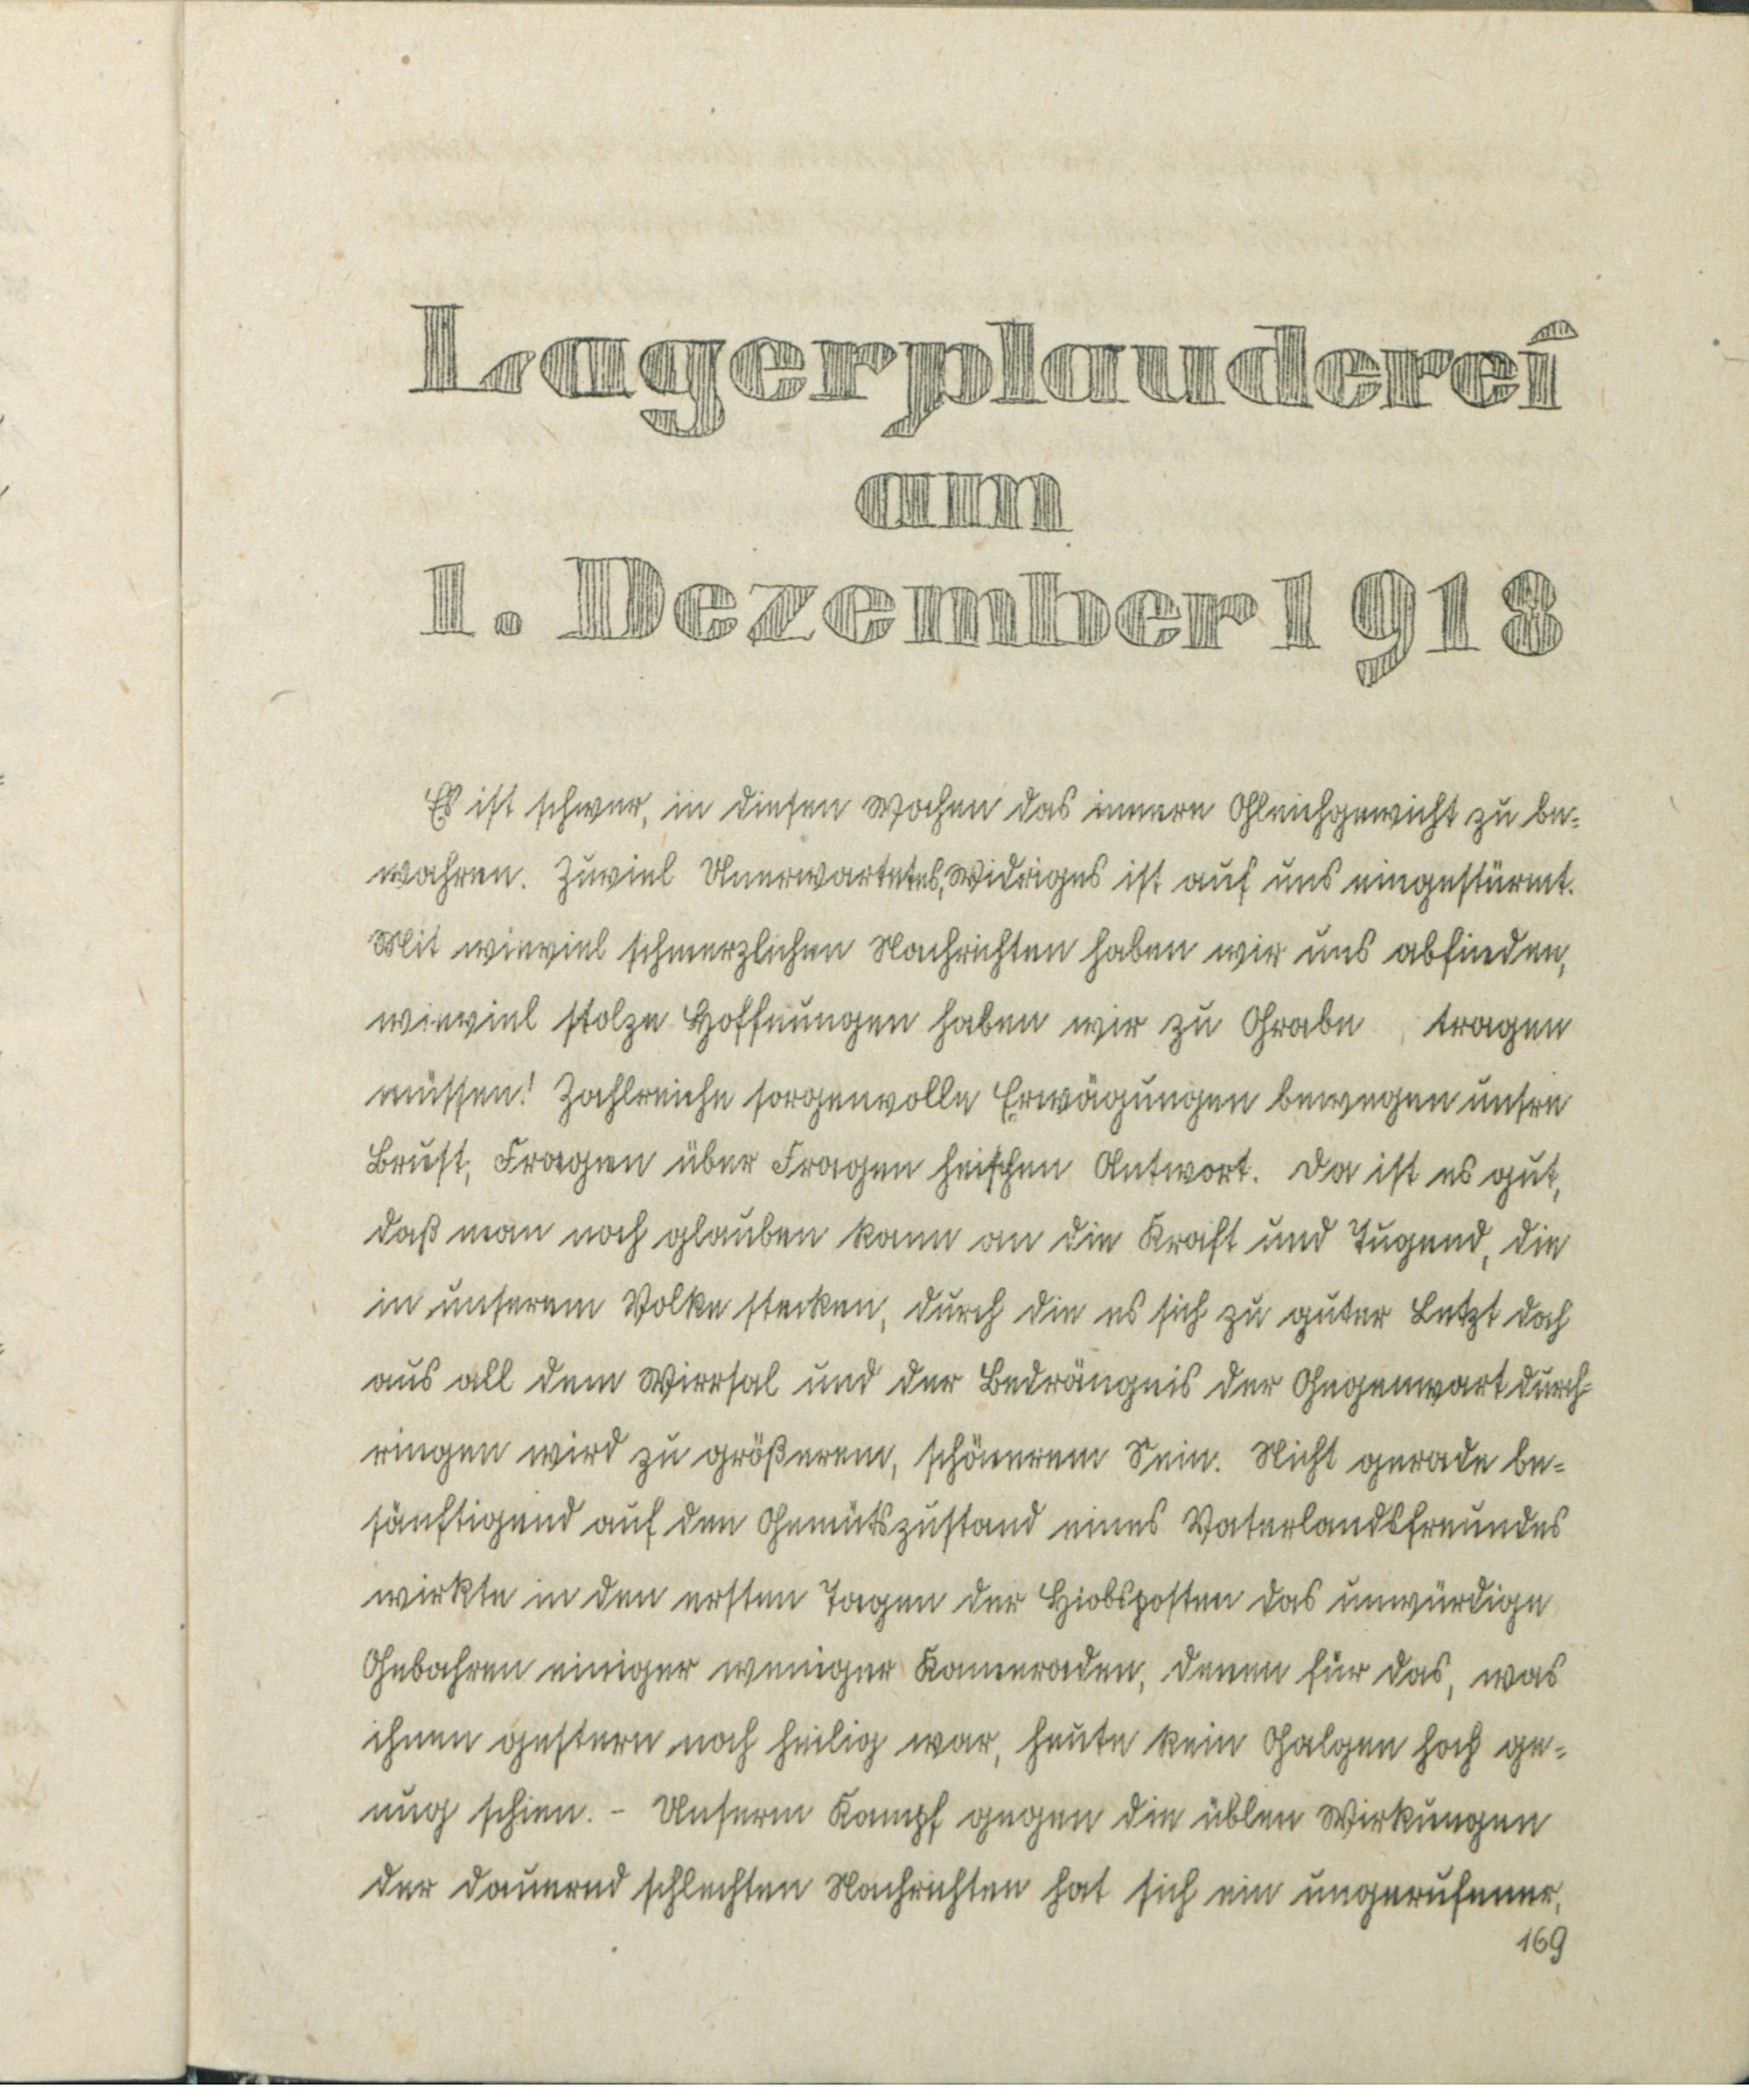 Lagerplauderei
am
1. Dezember 1918
Es ist schwer, in diesen Wochen das innere Gleichgewicht zu be-
wahren. Zuviel Unerwartetes, Widriges ist auf uns eingestürmt.
Mit wieviel schmerzlichen Nachrichten haben wir uns abfinden,
wieviel stolze Hoffnungen haben wir zu Grabe tragen
müssen! Zahlreiche sorgenvolle Erwägungen bewegen unsre
Brust, Fragen über Fragen heischen Antwort. Da ist es gut,
daß man noch glauben kann an die Kraft und Tugend, die
in unserem Volke stecken, durch die es sich zu guter Letzt doch
aus all dem Wirrsal und der Bedrängnis der Gegenwart durch-
ringen wird zu größerem, schönerem Sein. Nicht gerade be-
sänftigend auf den Gemütszustand eines Vaterlandsfreundes
wirkte in den ersten Tagen der Hiobsposten das unwürdige
Gebahren einiger weniger Kameraden, denen für das, was
ihnen gestern noch heilig war, heute kein Galgen hoch ge-
nug schien. - Unserm Kampf gegen die üblen Wirkungen
der dauernd schlechten Nachrichten hat sich ein ungerufener,
169